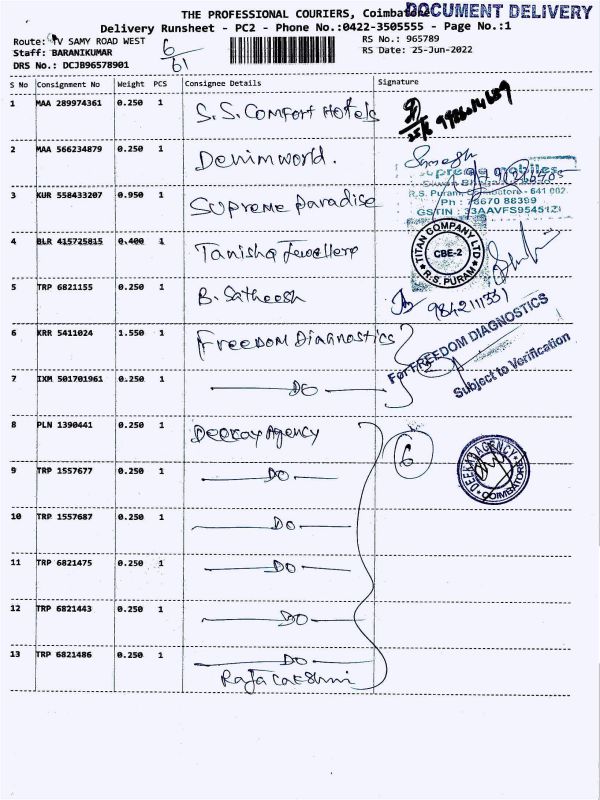 THE PROFESSIONAL COURIERS, Coimbatore
DOCUMENT DELIVERY
Delivery Runsheet - PC2 - Phone No.:0422-3505555 - Page No.:1
Route: TV SAMY ROAD WEST RS No.: 965789
Staff: BARANIKUMAR RS Date: 25-Jun-2022
DRS No.: DCJB96578901
6/61
S No Consignment No Weight PCS Consignee Details Signature
1 MAA 289974361 0.250 1 S.S. Comfort Hotels
25/6
2 MAA 566234879 0.250 1 Denimworld.
3 KUR 558433207 0.950 1 Supreme Paradise
R.S. Puram, Coimbatore - 641 002.
GSTIN : 33AAVFS9545
4 BLR 415725815 0.400 1 Tanishq Jewellery
TITAN COMPANY LTD
CBE-2
R.S. PURAM
5 TRP 6821155 0.250 1 B. Satheesh
9842111331
6 KRR 5411024 1.550 1 Freedom Diagnostics
For FREEDOM DIAGNOSTICS
2
Subject to Verification
7 IXM 501701961 0.250 1 DO
8 PLN 1390441 0.250 1 Deekay Agency
6
DEEKAY AGENCY
COIMBATORE
9 TRP 1557677 0.250 1 DO
10 TRP 1557687 0.250 1 DO
11 TRP 6821475 0.250 1 DO
12 TRP 6821443 0.250 1 DO
13 TRP 6821486 0.250 1 DO
Raja Lakshmi